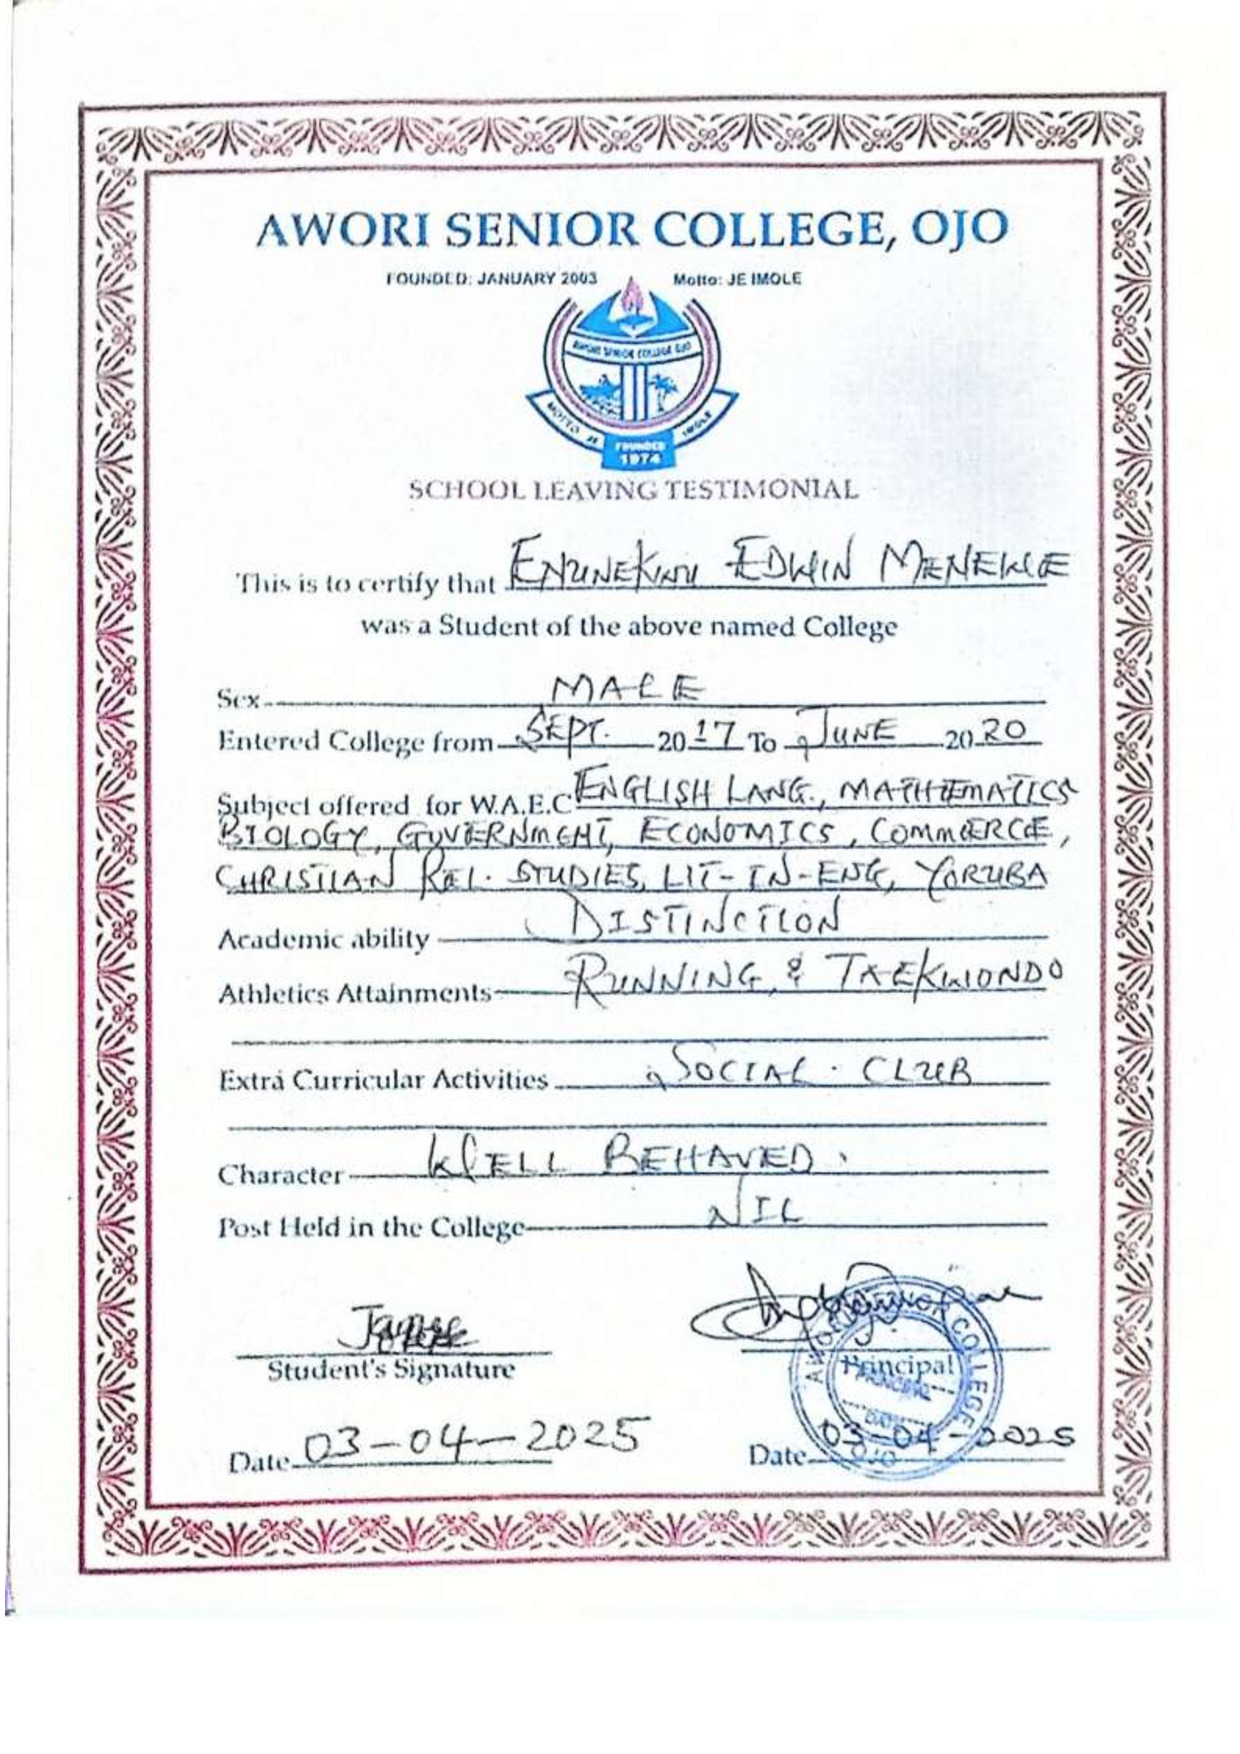 AWORI SENIOR COLLEGE, OJO
FOUNDED: JANUARY 2003 Motto: JE IMOLE
AWORI SENIOR COLLEGE OJO
MOTTO JE IMOLE
FOUNDED
1974
SCHOOL LEAVING TESTIMONIAL
This is to certify that EDWIN
was a Student of the above named College
Sex MALE
Entered College from SEPT. 2017 To JUNE 2020
Subject offered for W.A.E.C ENGLISH LANG., MATHEMATICS
BIOLOGY, GOVERNMENT, ECONOMICS, COMMERCE,
CHRISTIAN REL. STUDIES, LIT-IN-ENG, YORUBA
Academic ability DISTINCTION
Athletics Attainments RUNNING, & TAEKWONDO
Extra Curricular Activities SOCIAL. CLUB
Character WELL BEHAVED.
Post Held in the College NIL
Student's Signature
Principal
AWORI SENIOR COLLEGE
PRINCIPAL
DATE
OJO
Date 03-04-2025
Date 03-04-2025